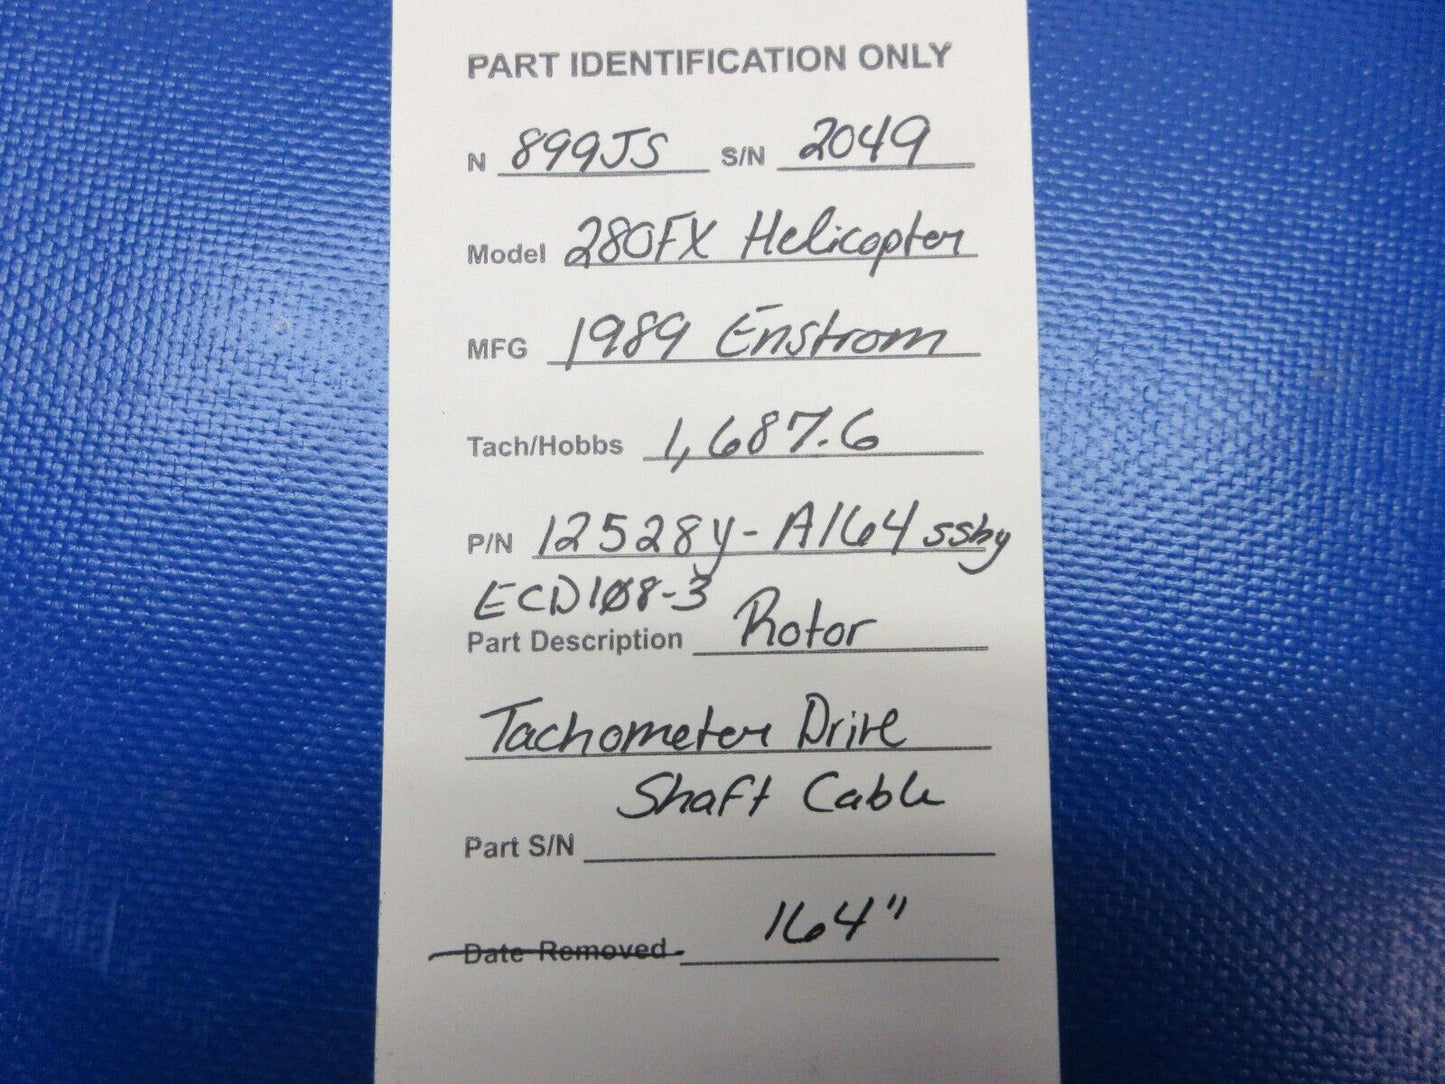 PART IDENTIFICATION ONLY
N 899JS S/N 2049
Model 280FX Helicopter
MFG 1989 Enstrom
Tach/Hobbs 1,687.6
P/N 12528y-A164 ssby
ECD108-3
Part Description Rotor
Tachometer Drive
Shaft Cable
Part S/N
Date Removed 164"